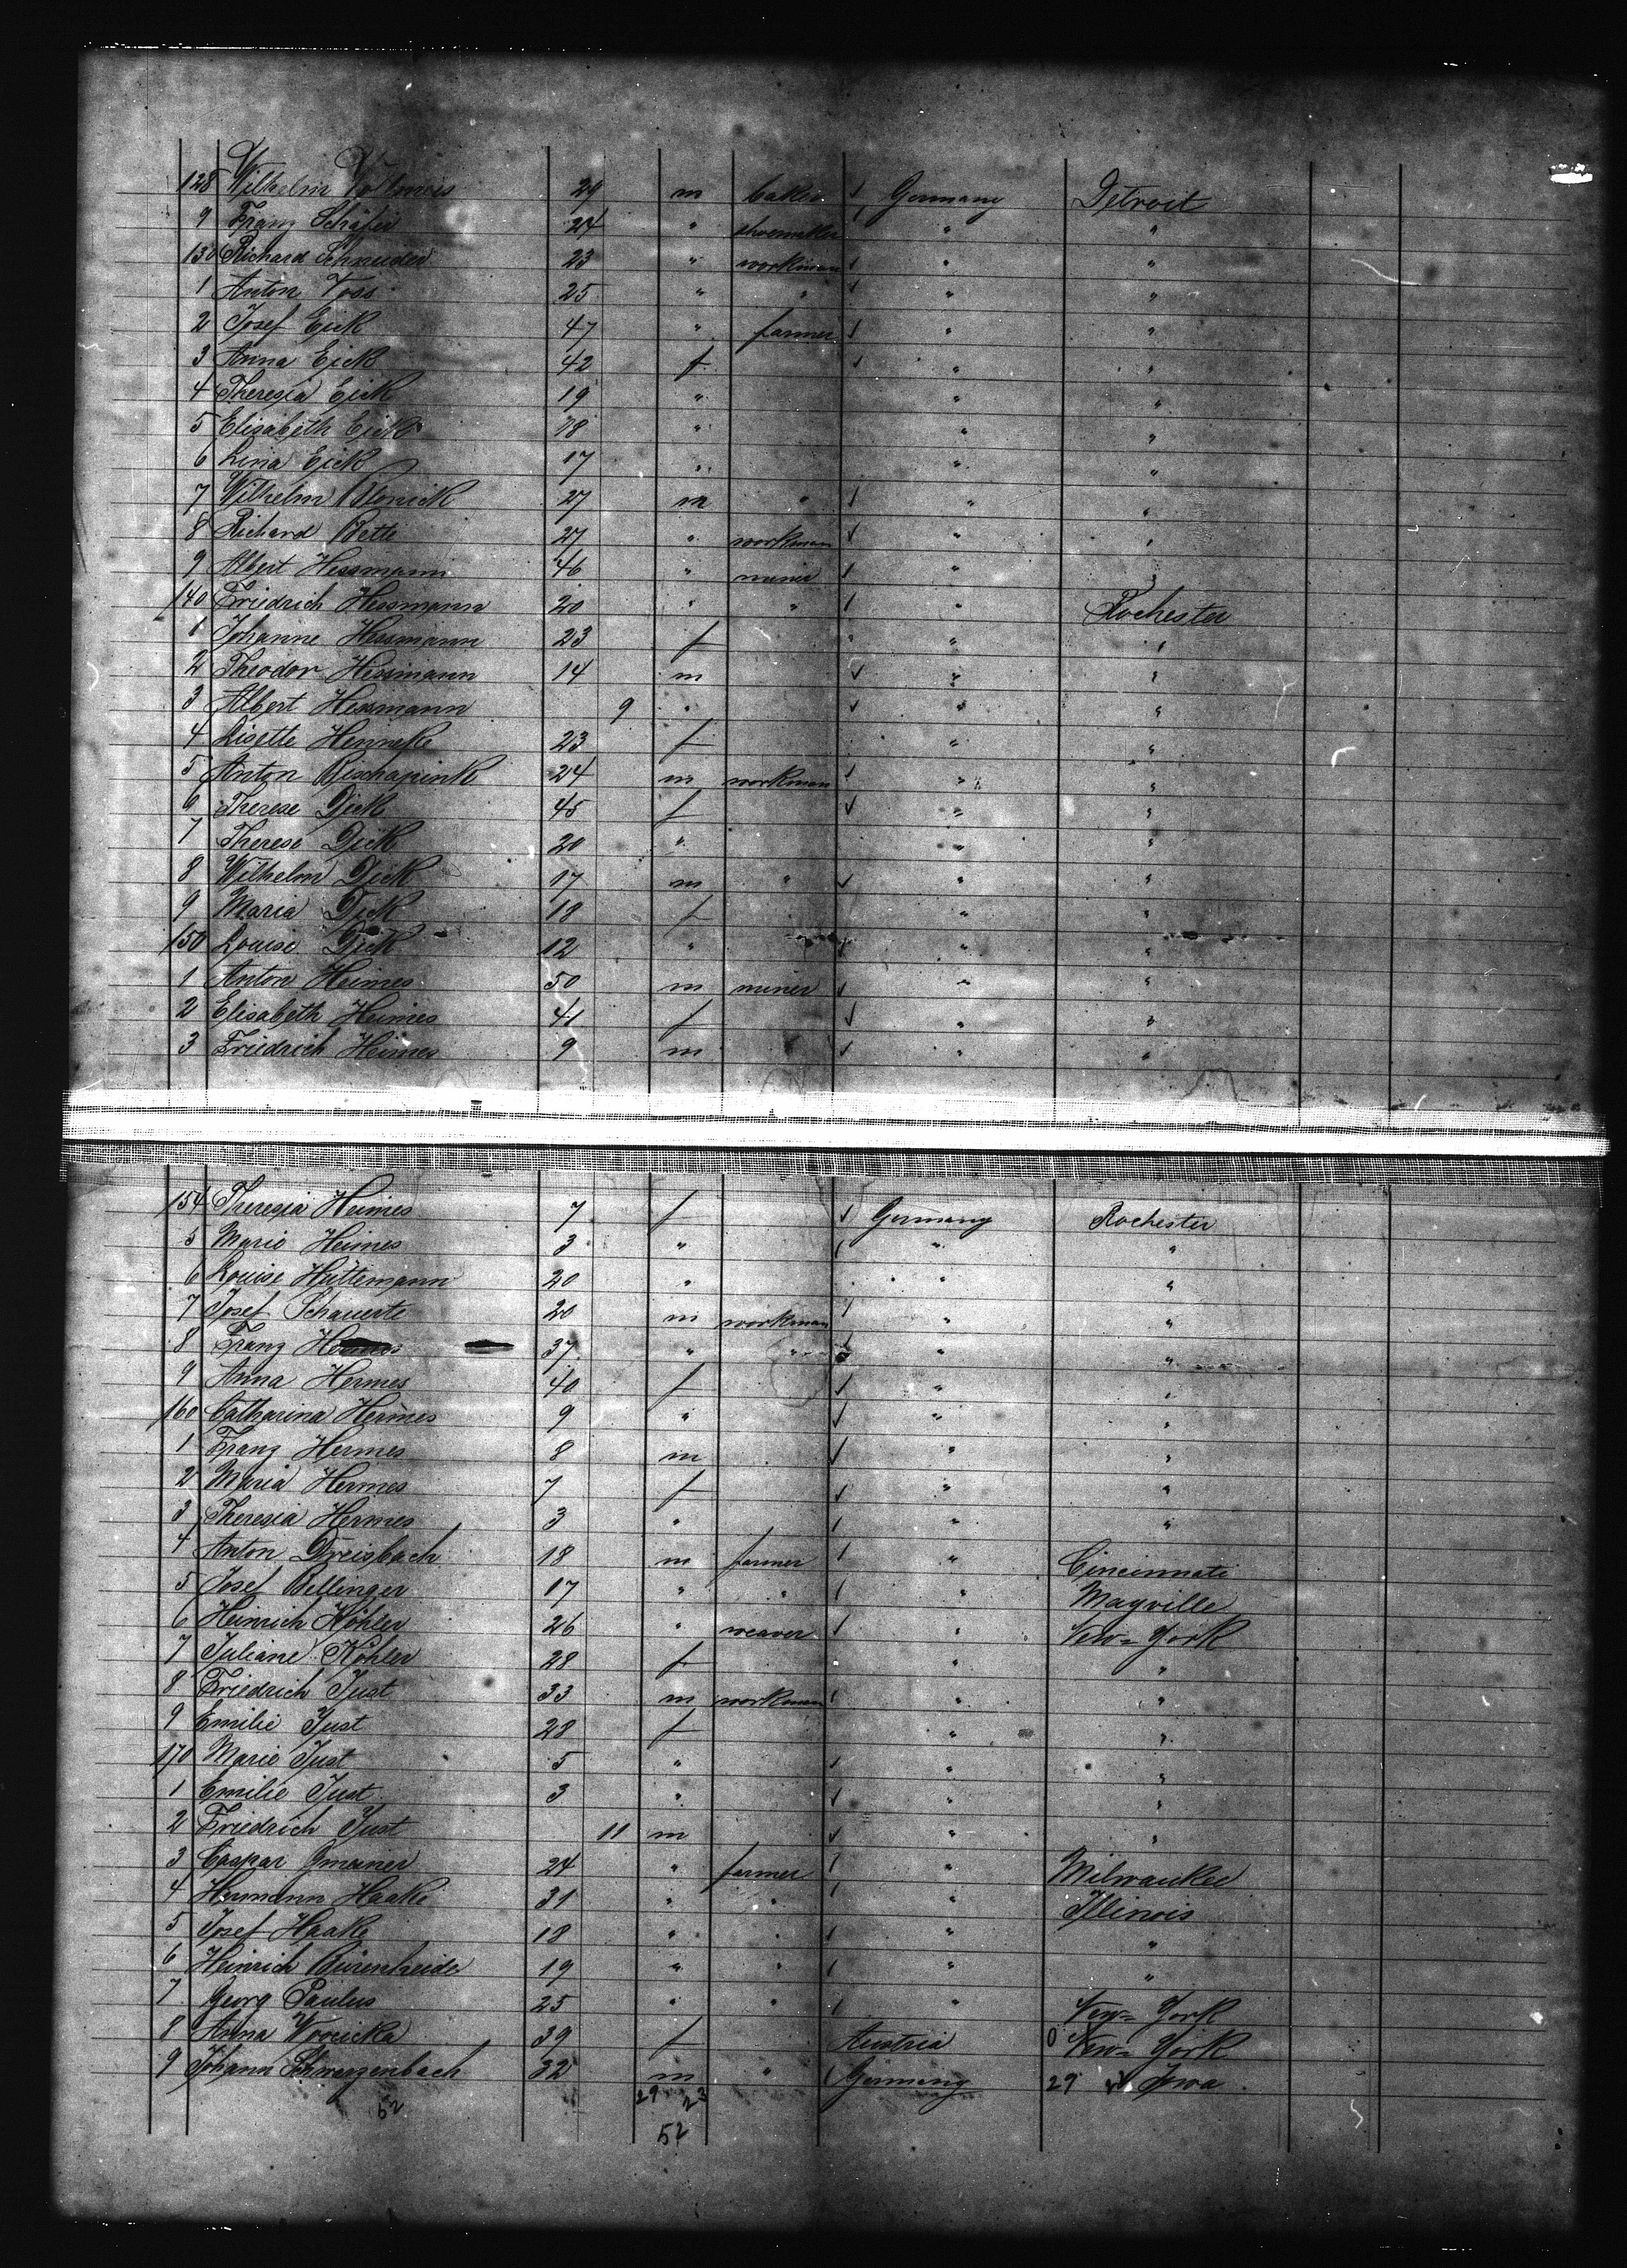 128 Wilhelm Vollmers 29 m baker Germany Detroit
9 Franz Schäfer 24 " shoemaker " "
130 Richard Schneider 23 " workman " "
1 Anton Voss 25 " " " "
2 Josef Eick 47 " farmer " "
3 Anna Eick 42 f " "
4 Theresia Eick 19 " " "
5 Elisabeth Eick 18 " " "
6 Lina Eick 17 " " "
7 Wilhelm 27 m " " "
8 Richard Bette 27 " workman " "
9 Albert Hessmann 46 " miner " "
140 Friedrich Hessmann 20 " " " Rochester
1 Johanne Hessmann 23 f " "
2 Theodor Hessmann 14 m " "
3 Albert Hessmann 9 " " "
4 Lisette Henneke 23 f " "
5 Anton Bischopink 24 m workman " "
6 Therese Dick 45 f " "
7 Therese Dick 20 " " "
8 Wilhelm Dick 17 m " " "
9 Maria Dick 18 f " "
150 Louise Dick 12 " " "
1 Anton Heimes 50 m miner " "
2 Elisabeth Heimes 41 f " "
3 Friedrich Heimes 9 m " "
154 Theresia Heimes 7 f Germany Rochester
5 Marie Heimes 3 " " "
6 Louise Hüttemann 20 " " "
7 Josef Schauerte 20 m workman " "
8 Franz 37 " " " "
9 Anna Hermes 40 f " "
160 Catharina Hermes 9 " " "
1 Franz Hermes 8 m " "
2 Maria Hermes 7 f " "
3 Theresia Hermes 3 " " "
4 Anton Dreisbach 18 m farmer " Cincinnati
5 Josef Bellinger 17 " " " Mayville
6 Heinrich Köhler 26 " weaver " New-York
7 Juliane Köhler 28 f " "
8 Friedrich Just 33 m workman " "
9 Emilie Just 28 f " "
170 Marie Just 5 " " "
1 Emilie Just 3 " " "
2 Friedrich Just 11 m " "
3 Caspar Gmeiner 24 " farmer " Milwaukee
4 Hermann Haake 31 " " " Illinois
5 Josef Haake 18 " " "
6 Heinrich Bürenheide 19 " " " "
7 Georg Paulus 25 " " " New-York
8 Anna 39 f Austria 0 New-York
9 Johann Schwarzenbach 32 m " Germany 29 Iowa
52 29 23
52